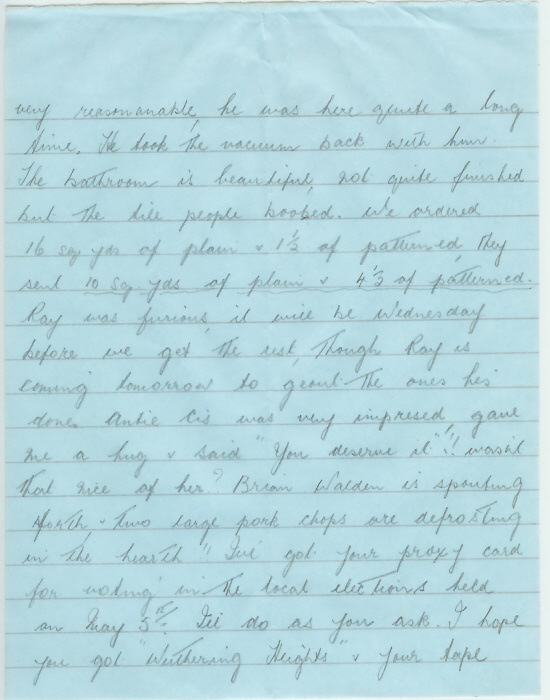 very reasonanable, he was here quite a long
time. He took the vacuum back with him.
The bathroom is beautiful, not quite finished
but the tile people boobed. We ordered
16 sq yds of plain & 1½ of patterned, they
sent 10 sq. yds of plain & 4½ of patterned.
Ray was furious, it will be Wednesday
before we get the rest, Though Ray is
coming tomorrow to grout the ones he's
done. Antie Cis was very impresed, gave
me a hug & said "You deserve it"!! wasn't
that nice of her? Brian Walden is spouting
forth, & two large pork chops are defrosting
in the hearth!! I've got your proxy card
for voting in the local elections held
on May 5th. I'll do as you ask. I hope
you got "Wuthering Heights" & your tape